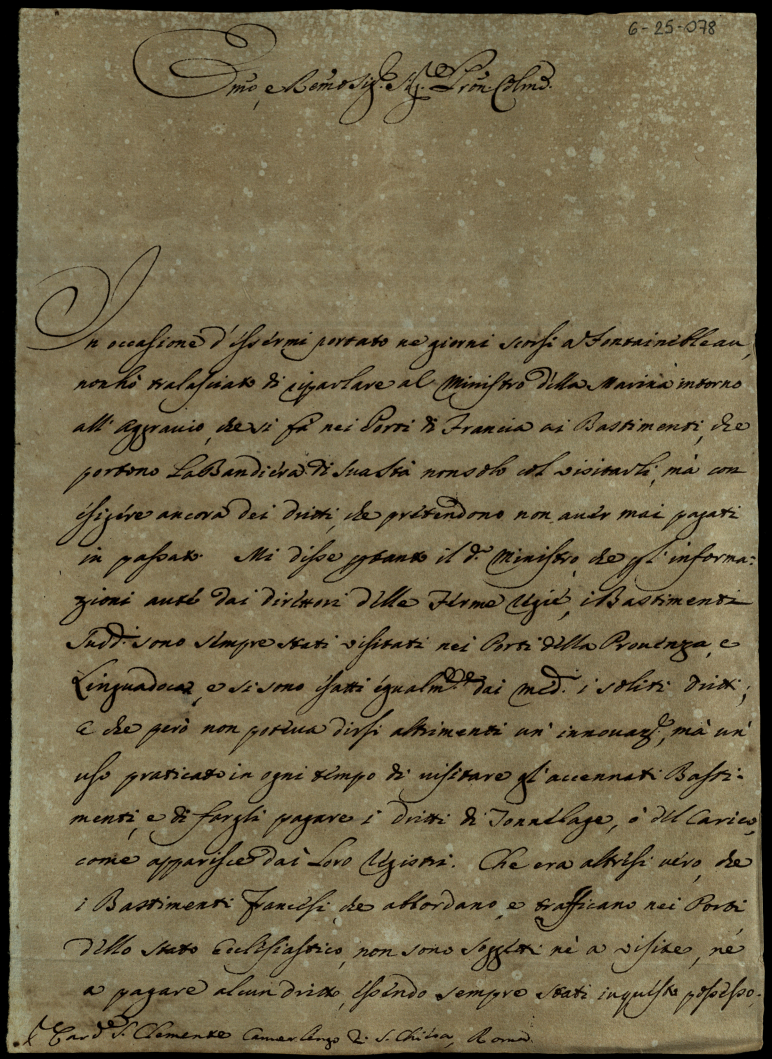 6-25-078
Emo, e Remo Sig.r Sig. Pron Colmo.
In occasione d'essermi portato ne giorni scorsi a Fontainebleau,
non hò tralasciato di riparlare al Ministro della Marina intorno
all'Aggravio, che si fà nei Porti di Francia ai Bastimenti, che
portono La Bandiera di Sua Stà non solo col visitarli, mà con
esigere ancora dei dritti, che pretendono non aver mai pagati
in passato. Mi disse pertanto il d.o Ministro, che per l'informa:
zioni auté dai direttori delle Ferme Regie, i Bastimenti
Sudd.i sono sempre stati visitati nei Porti della Provenza, e
Linguadoca, e si sono esatti egualm.te dai med.i i soliti dritti;
E che però non poteva dirsi altrimenti un'innovaz.e, mà un'
uso praticato in ogni tempo di visitare gl'accennati Basti:
menti, e di fargli pagare i dritti di Tonnelage, ò del Carico,
come apparisce dai Loro Registri. Che era altresi vero, che
i Bastimenti francesi, che abbordano, e trafficano nei Porti
dello Stato Ecclesiastico, non sono soggetti nè a visite, né
a pagare alcun dritto, essendo sempre stati in questo possesso,
S.r Card.e S. Clemente Camerlengo di S. Chiesa, Roma